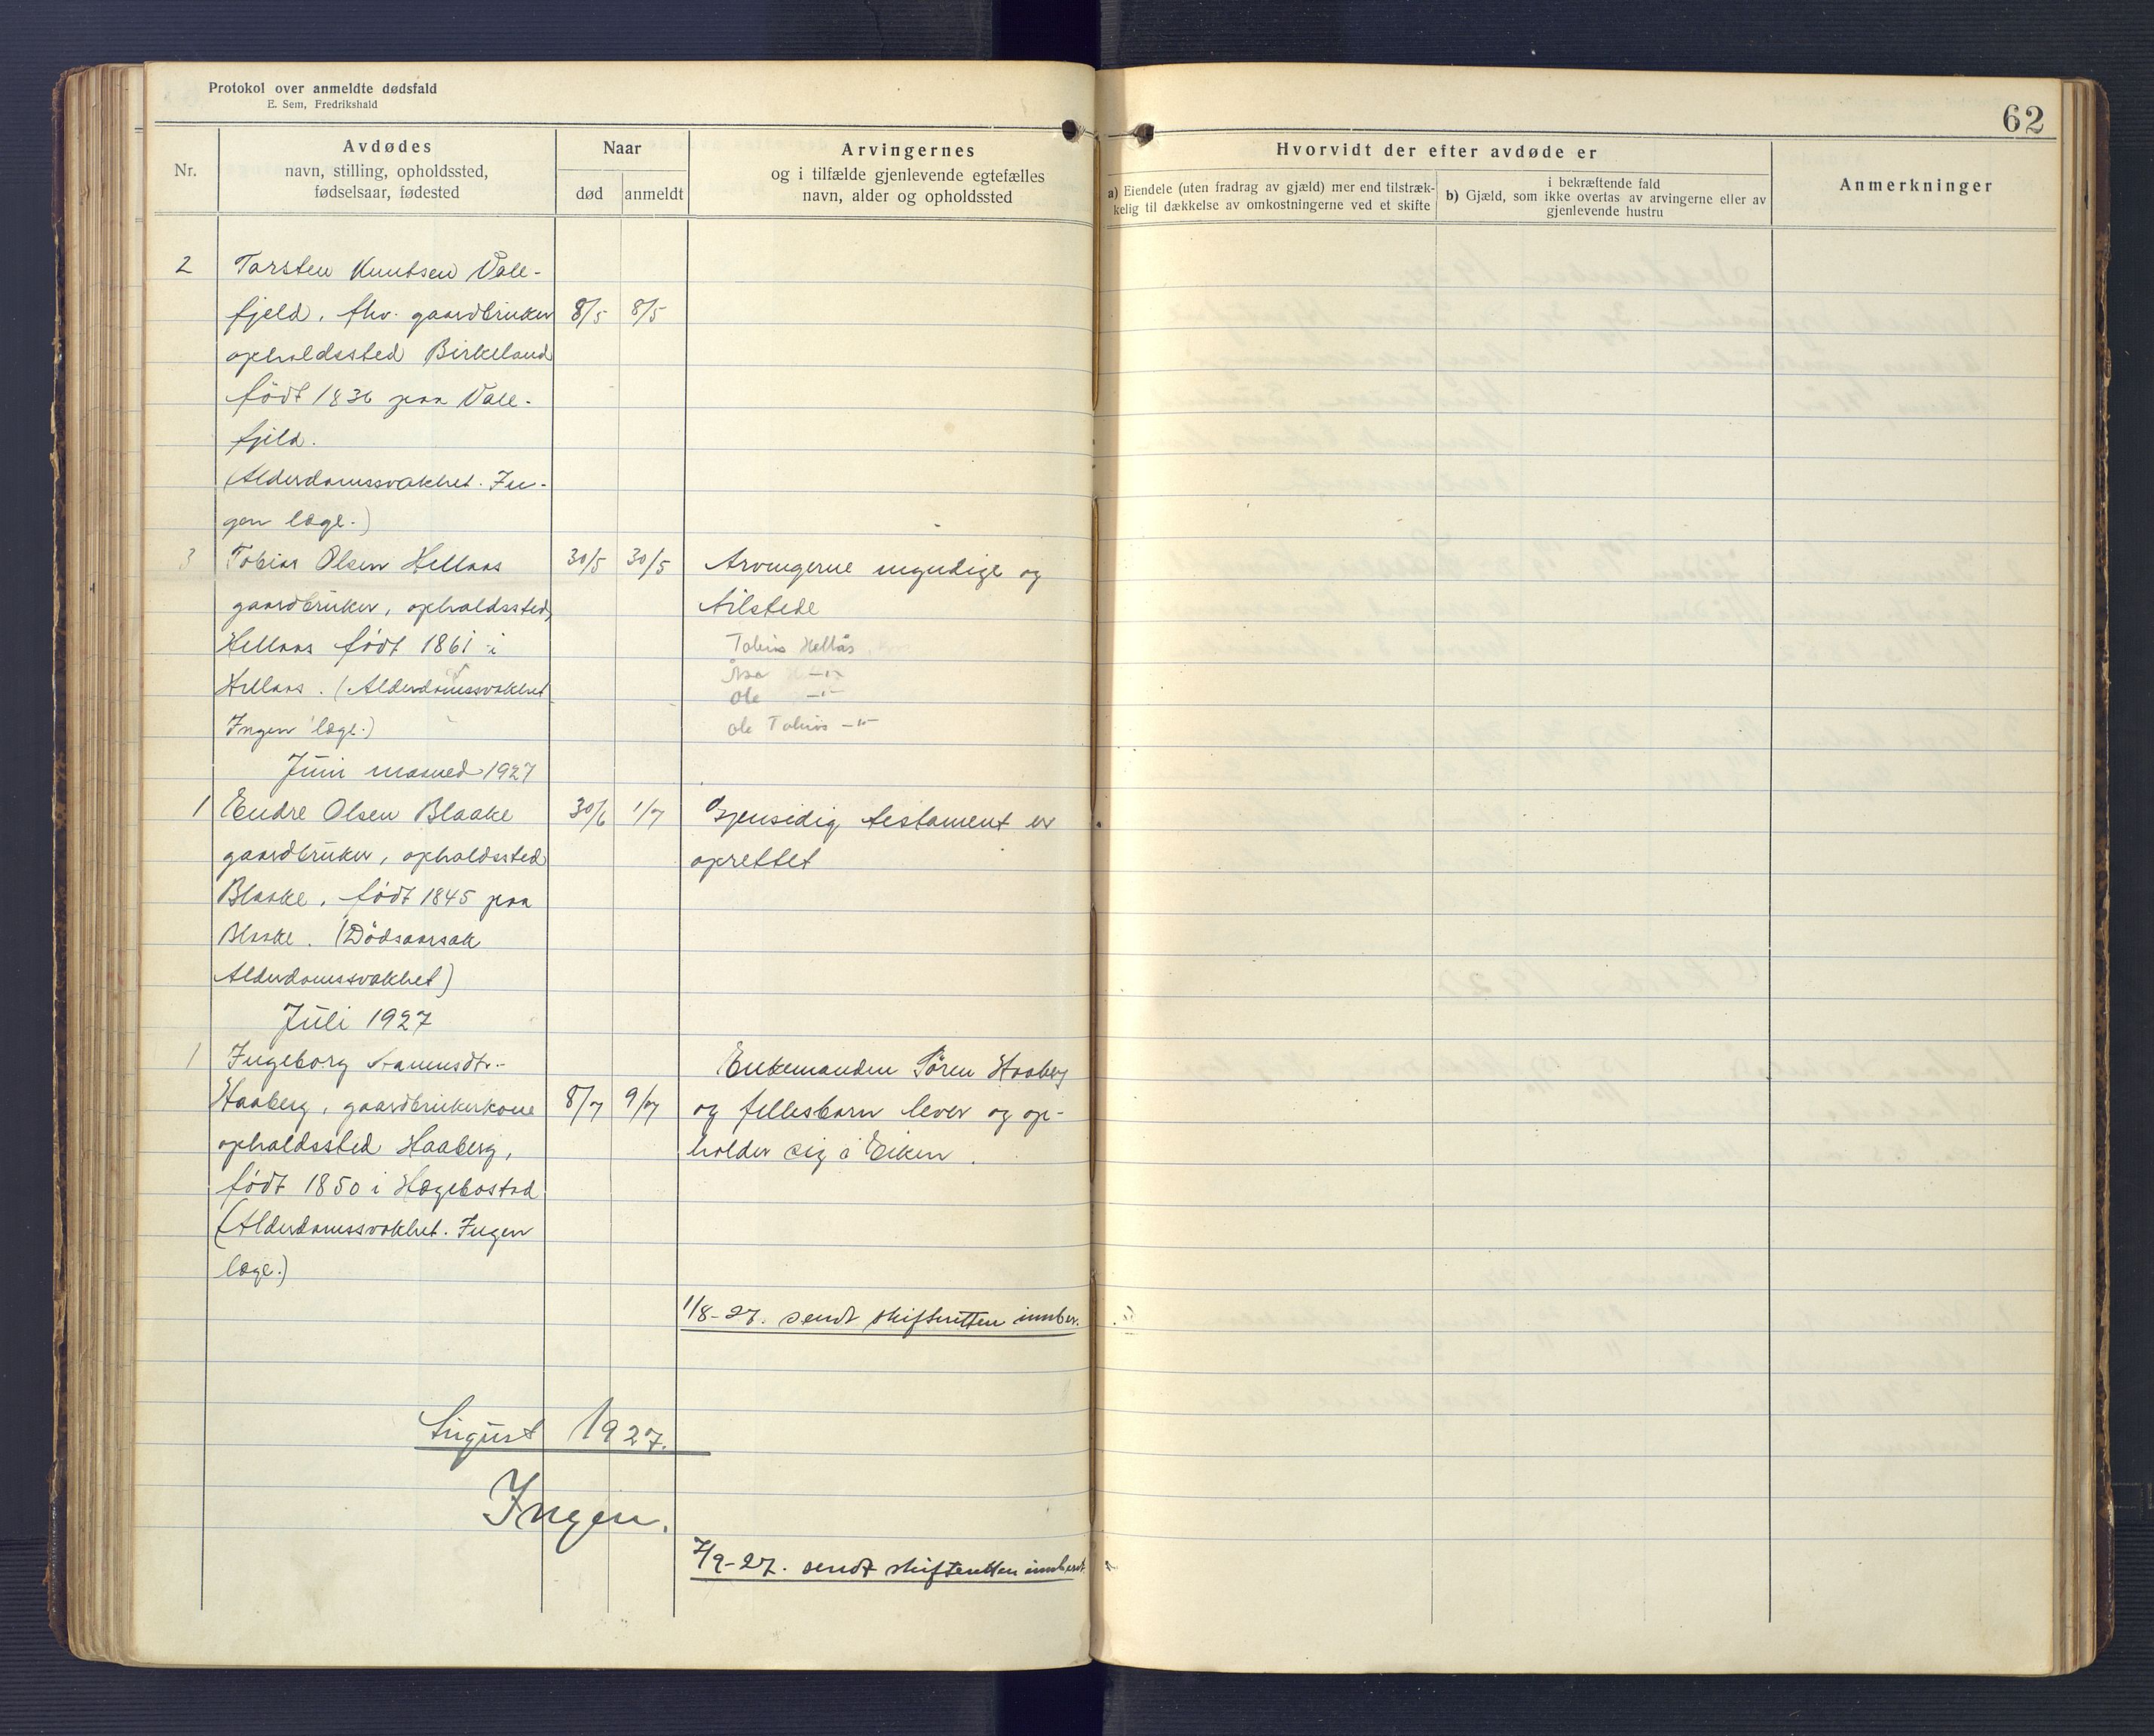 Protokol over anmeldte dødsfald
E. Sem, Fredrikshald
62
Nr.
Avdødes
navn, stilling, opholdssted,
fødselsaar, fødested
Naar
død
anmeldt
Arvingernes
og i tilfælde gjenlevende egtefælles
navn, alder og opholdssted
Hvorvidt der efter avdøde er
a) Eiendele (uten fradrag av gjæld) mer end tilstræk-
kelig til dækkelse av omkostningerne ved et skifte
i bekræftende fald
b) Gjæld, som ikke overtas av arvingerne eller av
gjenlevende hustru
Anmerkninger
2 Tarsten Knutsen Vale-
fjeld, fhv. gaardbruker 8/5 8/5
opholdssted Birkeland
født 1836 paa Vale-
fjeld.
(Alderdomssvakhet. In-
gen læge.)
3 Tobias Olsen Hellaas 30/5 30/5 Arvingerne myndige og
gaardbruker, opholdssted, tilstede
Hellaas født 1861 i Tobias Hellås
Hellaas. (Alderdomssvakhet Åsa -"-
Ole -"-
Ingen læge.) Ole Tobias -"-
Juni maaned 1927
1 Endre Olsen Blaake 30/6 1/7 Gjensidig testament er
gaardbruker, opholdssted oprettet
Blaake, født 1845 paa
Blaake. (Dödsaarsak
Alderdomssvakhet)
Juli 1927
1 Ingeborg Aanensdtr.- Enkemanden Sören Haaberg
Haaberg, gaardbrukerkone 8/7 9/7 og fellesbarn lever og op-
opholdssted Haaberg, holder sig i Eiken.
født 1850 i Hægebostad
(Alderdomssvakhet. Ingen
læge.)
1/8-27. sendt skifteretten innber.
August 1927.
Ingen.
7/9-27. sendt skifteretten innberet.